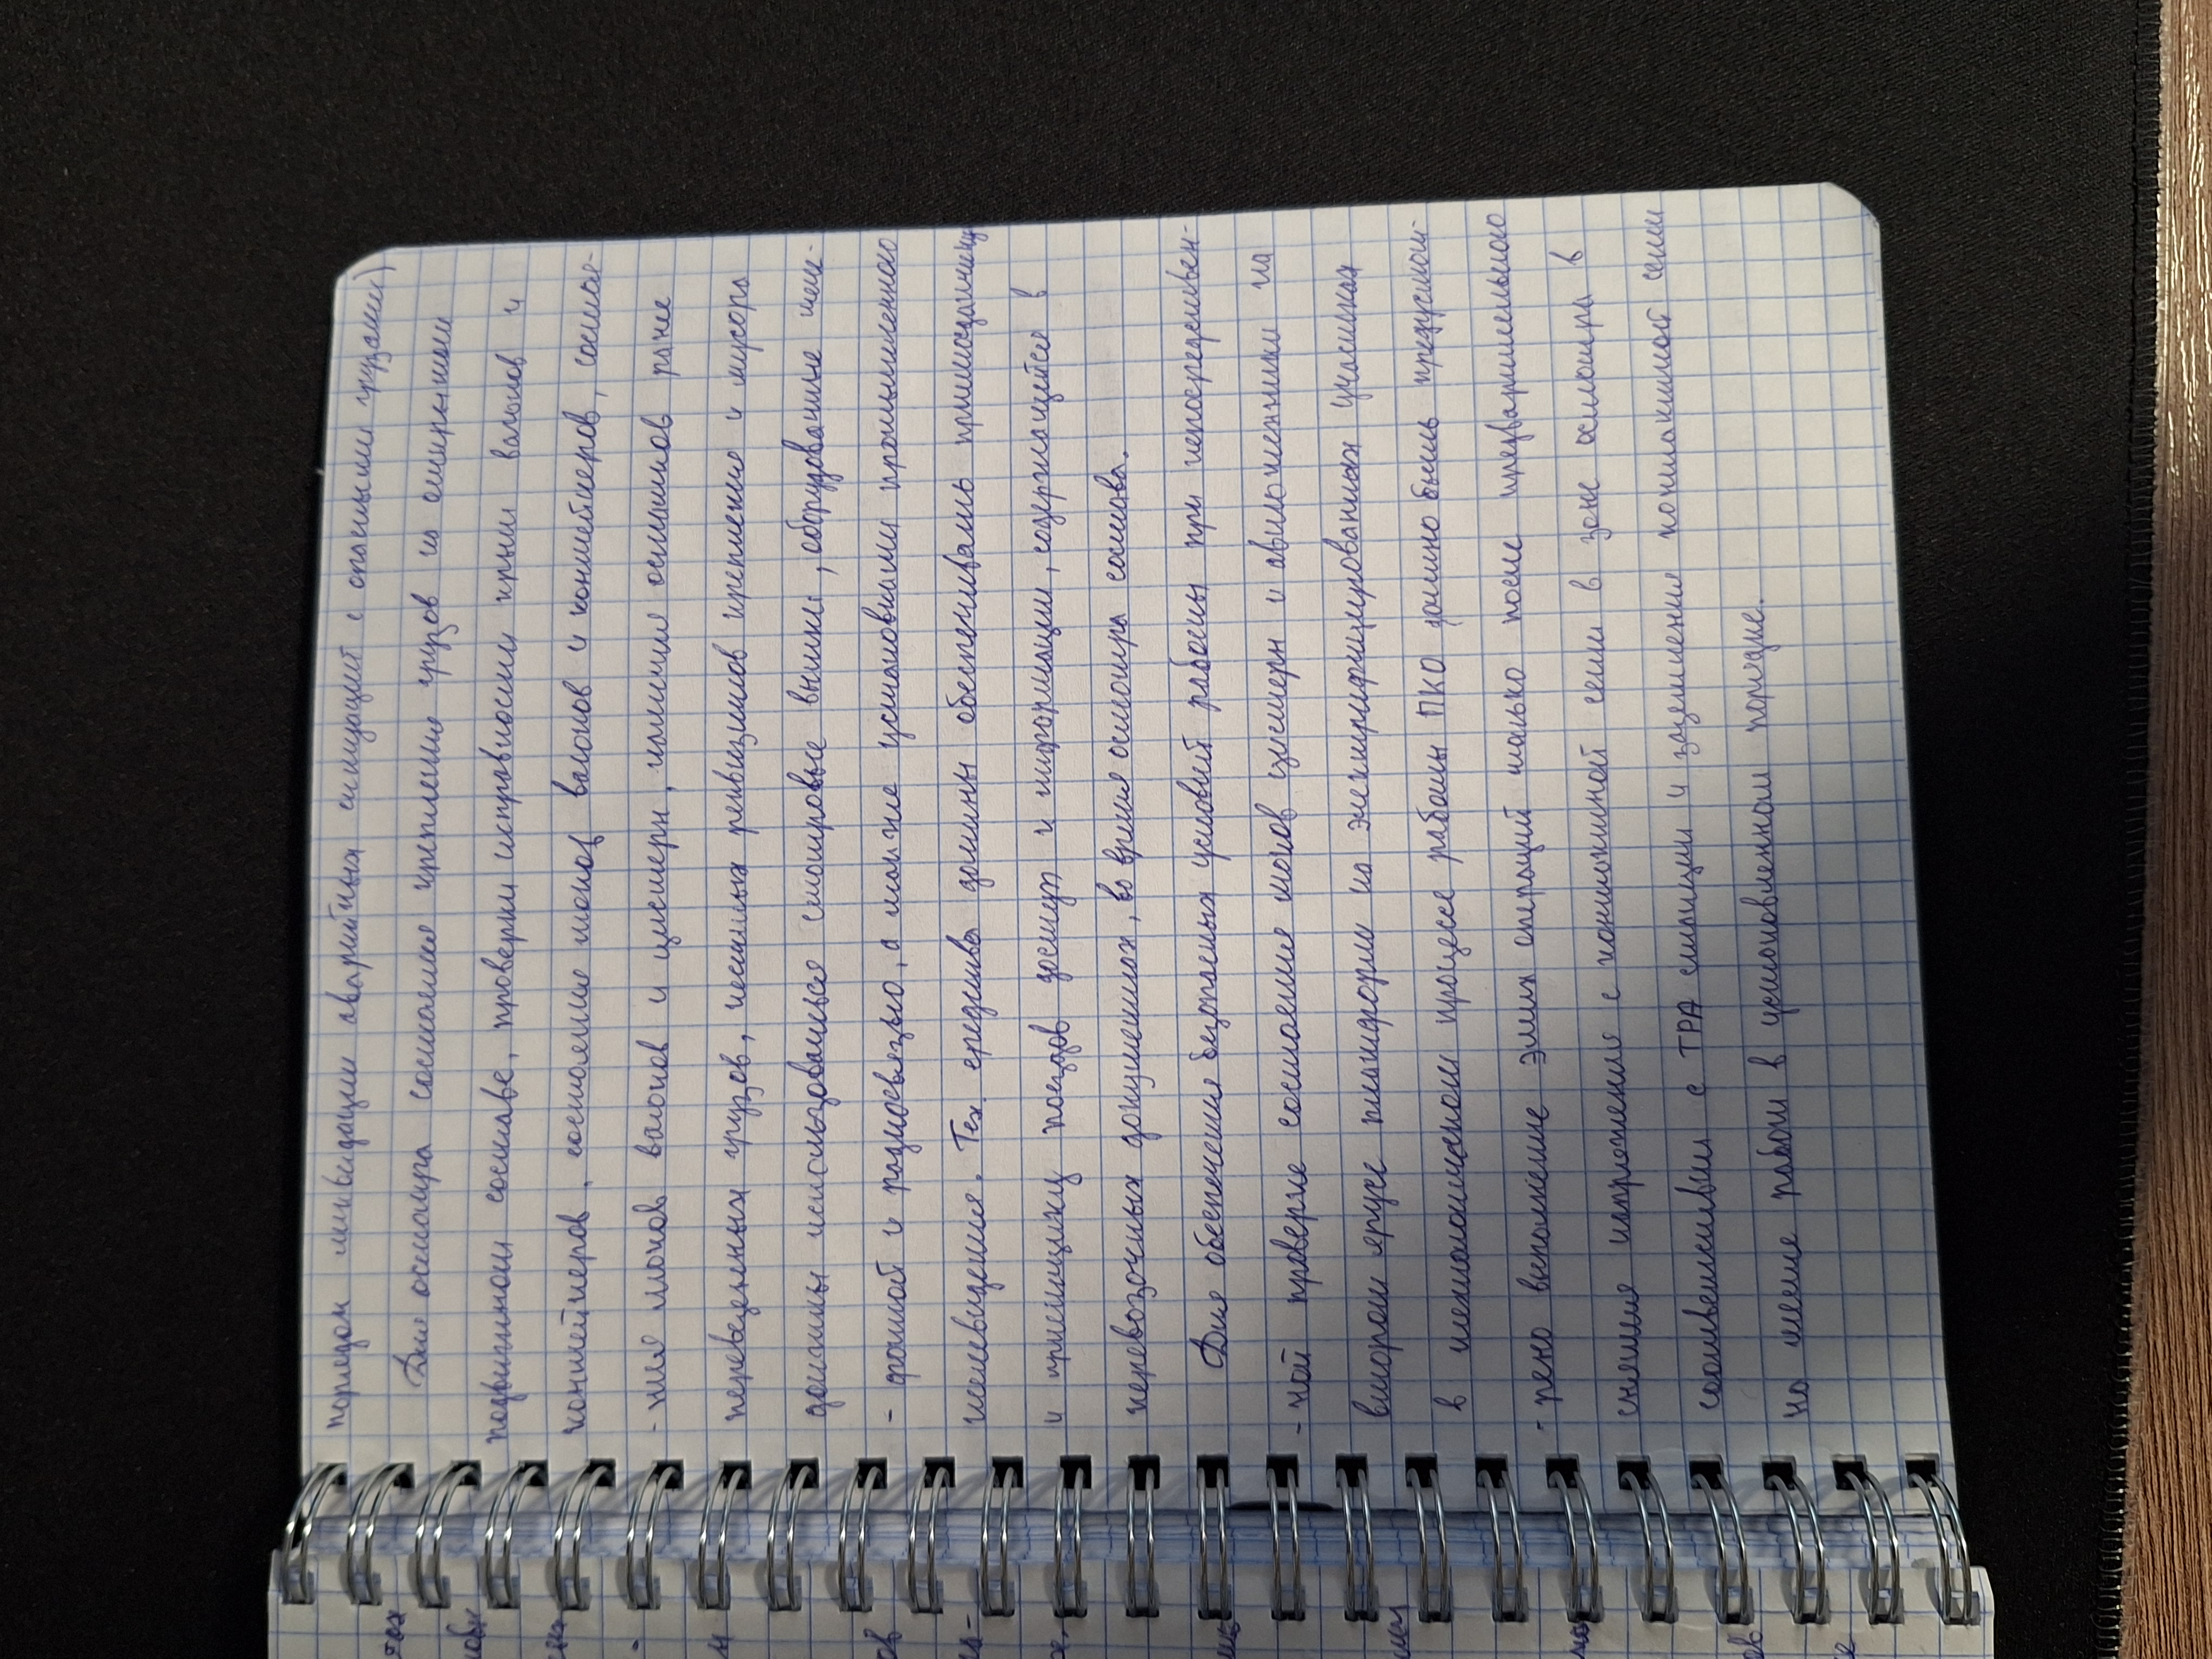 порядок ликвидации аварийных ситуаций с опасными грузами)
Для осмотра состояния крепления грузов на открытом
подвижном составе, проверки исправности крыш вагонов и
контейнеров, состояние люков вагонов и контейнеров, состоя-
-ние люков вагонов и цистерн, наличие остатков ранее
перевезенных грузов, несъемных реквизитов крепления и мусора
должны использоваться смотровые вышки, оборудованные теле-
- фонной и радиосвязью, а также установками промышленного
телевидения. Тех. средства должны обеспечивать приемосдатчику
и приемщику поездов доступ к информации, содержащейся в
перевозочных документах, во время осмотра состава.
Для обеспечения безопасных условий работы при непосредствен-
- ной проверке состояния люков цистерн и автомобилей на
втором ярусе платформы на электрифицированных участках
в технологическом процессе работы ПКО должно быть предусмот-
- рено выполнение этих операций только после предварительного
снятия напряжения с контактной сети в зоне осмотра в
соответствии с ТРА станции и заземления контактной сети
на месте работ в установленном порядке.